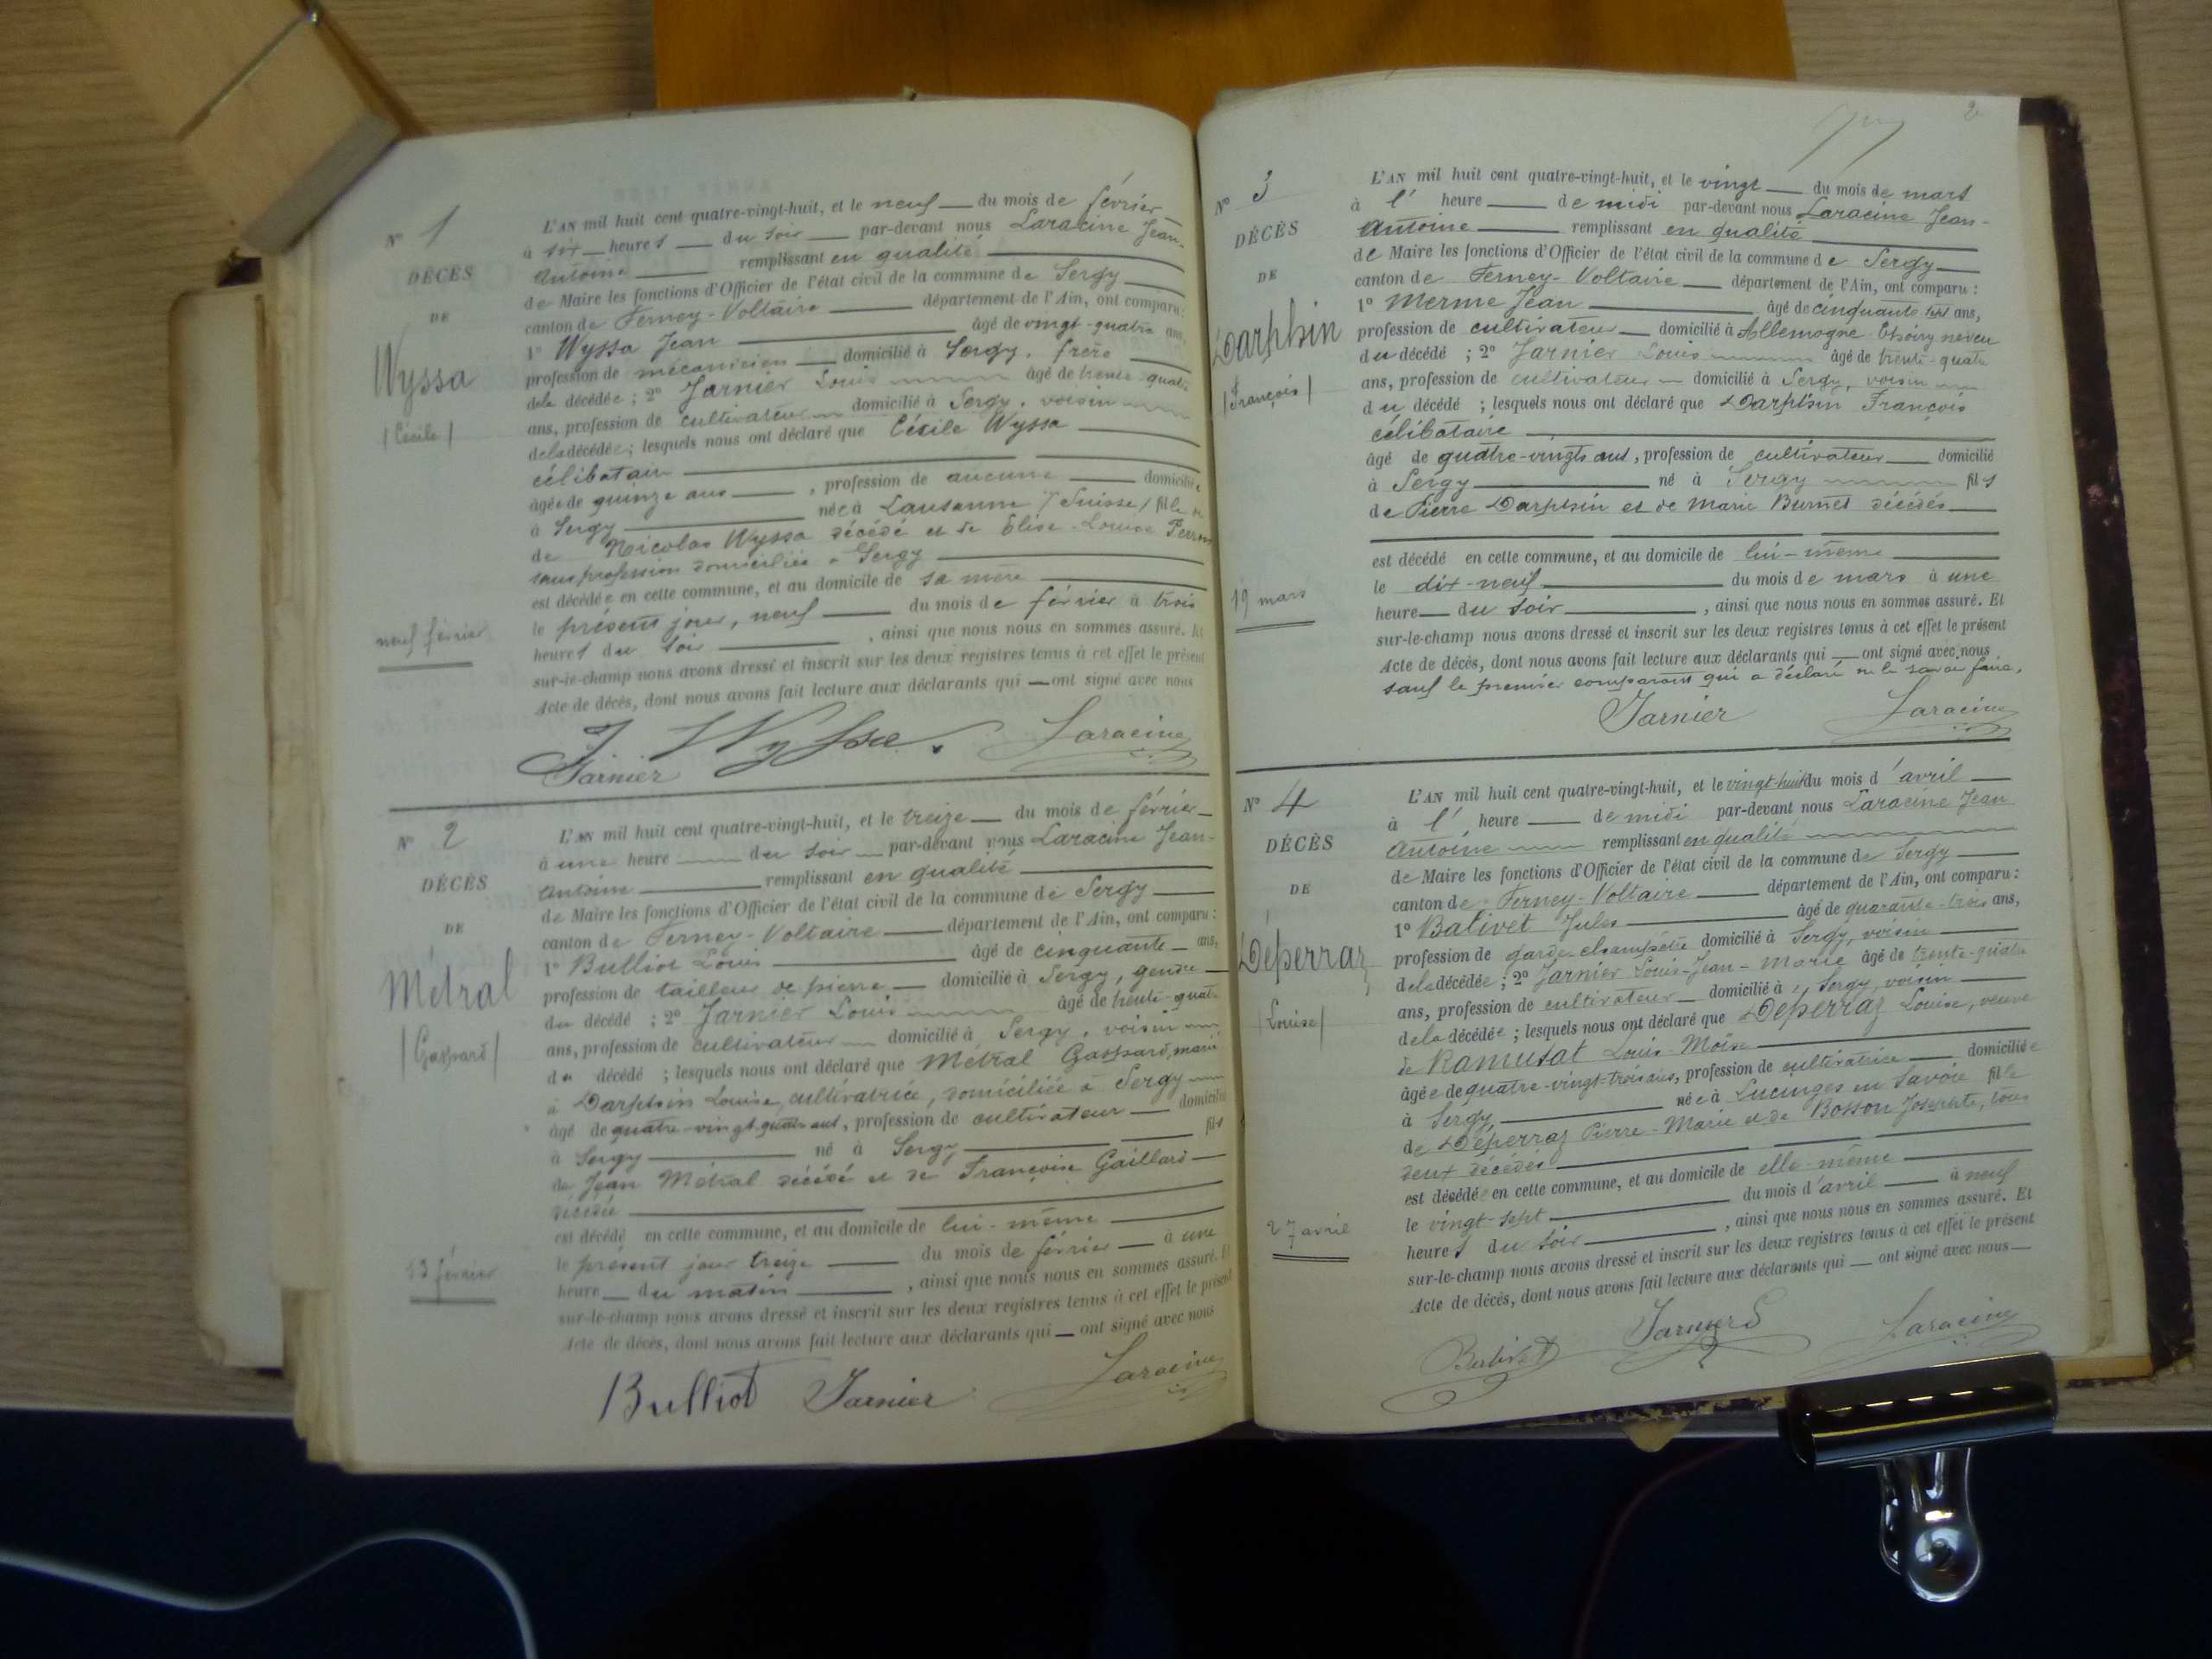 N° 1
DÉCÈS
DE
Wyssa
/Cécile/
neuf février
L'AN mil huit cent quatre-vingt-huit, et le neuf du mois de février
à six heures du soir par-devant nous Laracine Jean-
Antoine remplissant en qualité
de Maire les fonctions d'Officier de l'état civil de la commune de Sergy
canton de Ferney-Voltaire département de l'Ain, ont comparu:
1° Wyssa Jean âgé de vingt-quatre ans,
profession de mécanicien domicilié à Sergy, frère
de la décédée; 2° Jarnier Louis âgé de trente-quatre
ans, profession de cultivateur domicilié à Sergy, voisin
de la décédée; lesquels nous ont déclaré que Cécile Wyssa
célibataire
âgée de quinze ans, profession de aucune domiciliée
à Sergy née à Lausanne /Suisse/ fille
de Nicolas Wyssa décédé et de Elise-Louise
sans profession domiciliée à Sergy
est décédée en cette commune, et au domicile de sa mère
le présent jour, neuf du mois de février à trois
heures du soir, ainsi que nous nous en sommes assuré. Et
sur-le-champ nous avons dressé et inscrit sur les deux registres tenus à cet effet le présent
Acte de décès, dont nous avons fait lecture aux déclarants qui ont signé avec nous
J. Wyssa. Laracine
Jarnier
N° 2
DÉCÈS
DE
Métral
/Gaspard/
13 février
L'AN mil huit cent quatre-vingt-huit, et le treize du mois de février
à une heure du soir par-devant nous Laracine Jean-
Antoine remplissant en qualité
de Maire les fonctions d'Officier de l'état civil de la commune de Sergy
canton de Ferney-Voltaire département de l'Ain, ont comparu:
1° Bulliot Louis âgé de cinquante ans,
profession de tailleur de pierre domicilié à Sergy, gendre
du décédé; 2° Jarnier Louis âgé de trente-quatre
ans, profession de cultivateur domicilié à Sergy, voisin
du décédé; lesquels nous ont déclaré que Métral Gaspard, marié
à Darphin Louise, cultivatrice, domiciliée à Sergy
âgé de quatre-vingt-quatre ans, profession de cultivateur domicilié
à Sergy né à Sergy fils
de Jean Métral décédé et de Françoise Gaillard
décédée
est décédé en cette commune, et au domicile de lui-même
le présent jour treize du mois de février à une
heure du matin, ainsi que nous nous en sommes assuré. Et
sur-le-champ nous avons dressé et inscrit sur les deux registres tenus à cet effet le présent
Acte de décès, dont nous avons fait lecture aux déclarants qui ont signé avec nous
Bulliot Jarnier Laracine
2
N° 3
DÉCÈS
DE
Darphin
/François/
19 mars
L'AN mil huit cent quatre-vingt-huit, et le vingt du mois de mars
à l' heure de midi par-devant nous Laracine Jean-
Antoine remplissant en qualité
de Maire les fonctions d'Officier de l'état civil de la commune de Sergy
canton de Ferney-Voltaire département de l'Ain, ont comparu:
1° Merme Jean âgé de cinquante sept ans,
profession de cultivateur domicilié à Allemogne Thoiry neveu
du décédé; 2° Jarnier Louis âgé de trente-quatre
ans, profession de cultivateur domicilié à Sergy, voisin
du décédé; lesquels nous ont déclaré que Darphin François
célibataire
âgé de quatre-vingts ans, profession de cultivateur domicilié
à Sergy né à Sergy fils
de Pierre Darphin et de Marie Burnet décédés
est décédé en cette commune, et au domicile de lui-même
le dix-neuf du mois de mars à une
heure du soir, ainsi que nous nous en sommes assuré. Et
sur-le-champ nous avons dressé et inscrit sur les deux registres tenus à cet effet le présent
Acte de décès, dont nous avons fait lecture aux déclarants qui ont signé avec nous
sauf le premier comparant qui a déclaré ne le savoir faire.
Jarnier Laracine
N° 4
DÉCÈS
DE
Déperraz
/Louise/
27 avril
L'AN mil huit cent quatre-vingt-huit, et le vingt-huit du mois d'avril
à l' heure de midi par-devant nous Laracine Jean
Antoine remplissant en qualité
de Maire les fonctions d'Officier de l'état civil de la commune de Sergy
canton de Ferney-Voltaire département de l'Ain, ont comparu:
1° Bativet Jules âgé de quarante-trois ans,
profession de garde-champêtre domicilié à Sergy, voisin
de la décédée; 2° Jarnier Louis-Jean-Marie âgé de trente-quatre
ans, profession de cultivateur domicilié à Sergy, voisin
de la décédée; lesquels nous ont déclaré que Déperraz Louise, veuve
de Ramusat Louis Moïse
âgée de quatre-vingt-trois ans, profession de cultivatrice domiciliée
à Sergy née à Lucinges en Savoie fille
de Déperraz Pierre-Marie et de Bosson Josephte, tous
deux décédés
est décédée en cette commune, et au domicile de elle-même
le vingt-sept du mois d'avril à neuf
heures du soir, ainsi que nous nous en sommes assuré. Et
sur-le-champ nous avons dressé et inscrit sur les deux registres tenus à cet effet le présent
Acte de décès, dont nous avons fait lecture aux déclarants qui ont signé avec nous
Bativet Jarnier L Laracine